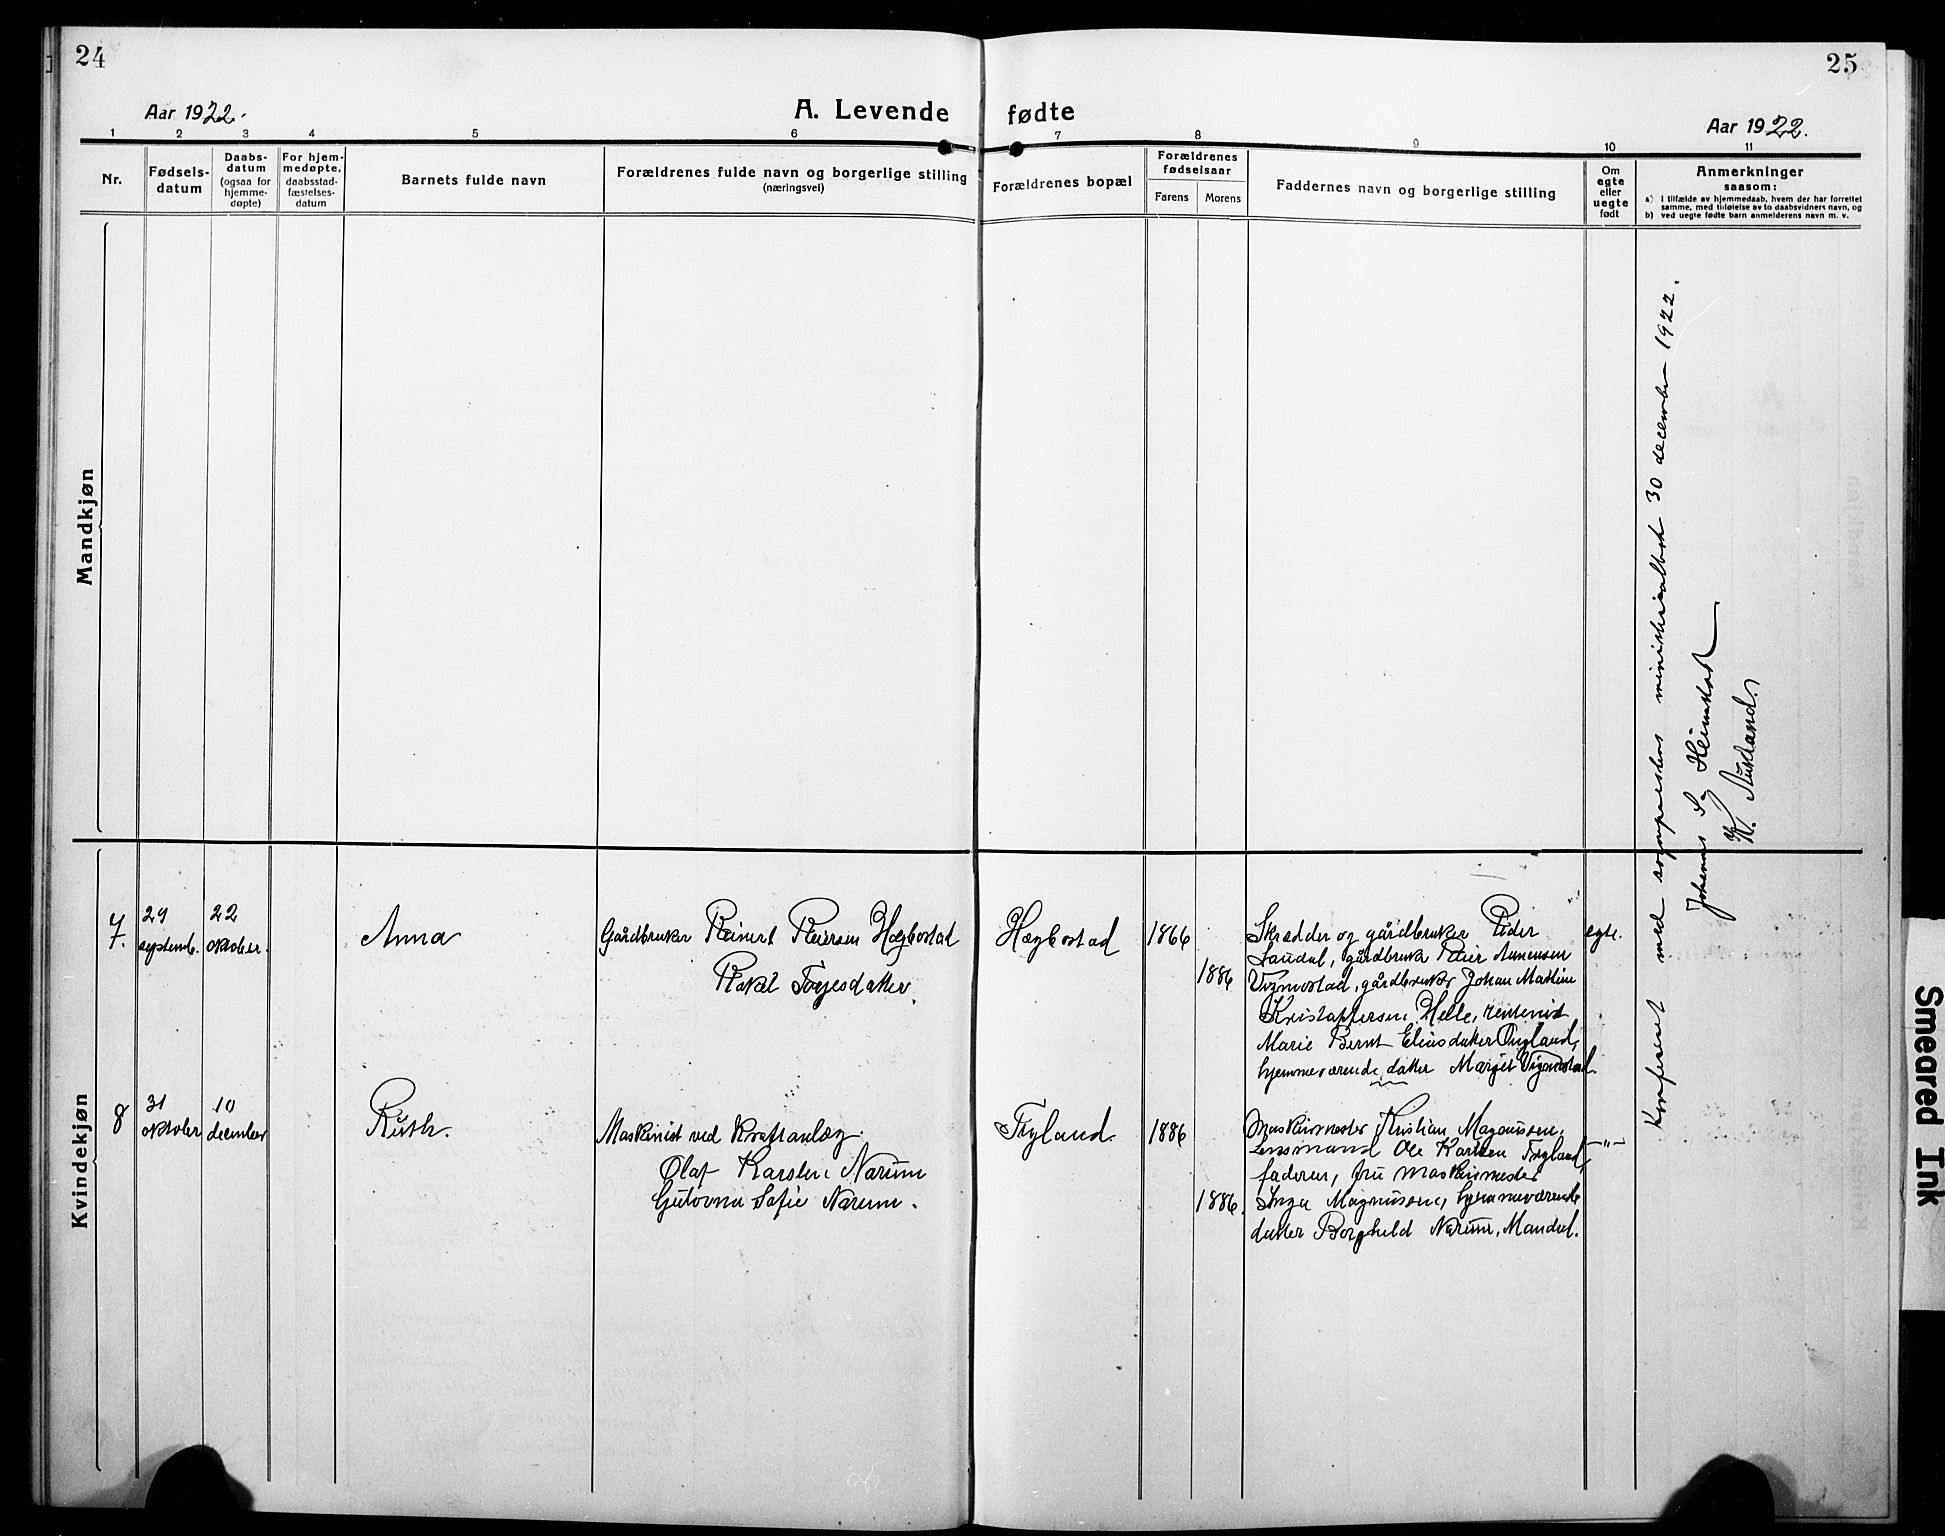 24
25
Aar 1922.
A. Levende fødte
Aar 1922.
1 2 3 4 5 6 7 8 9 10 11
Nr.
Fødsels-
datum
Daabs-
datum
(ogsaa for
hjemme-
døpte)
For hjem-
medøpte,
daabsstad-
fæstelses-
datum
Barnets fulde navn
Forældrenes fulde navn og borgerlige stilling
(næringsvei)
Forældrenes bopæl
Forældrenes
fødselsaar
Farens Morens
Faddernes navn og borgerlige stilling
Om
egte
eller
uegte
født
Anmerkninger
saasom:
a) i tilfælde av hjemmedaab, hvem der har forrettet
samme, med tilføielse av to daabsvidners navn, og
b) ved uegte fødte barn anmelderens navn m. v.
Mandkjøn
Kvindekjøn
7.
29
septemb.
22
oktober.
Anna
Gårdbruker Reinert Reiersen Hægbostad
Rakel Torjesdatter.
Hægbostad
1866
1886
Skrædder og gårdbruker Peder
Laudal, gårdbruker Reier Aanensen
Vigmostad, gårdbruker Johan Mathias
Kristoffersen Helle,
Marie Bernt Eliasdatter
hjemmeværende datter Margit Vigmostad.
egte.
8
31
oktober
10
december
Ruth.
Maskinist ved Kraftanlæg
Olaf Karsten Narum
Sofie Narum.
Tryland.
1886
1886.
Maskinmester Kristian Magnussen,
Lensmand Ole Karlsen Tryland,
faderen, fru maskinmester
Inga Magnussen, hjemmeværende
datter Borghild Narum, Mandal.
—"—
Konfereret med sogneprestens ministerialbok 30 december 1922.
Johannes S. Heimstad
K.
Smeared Ink